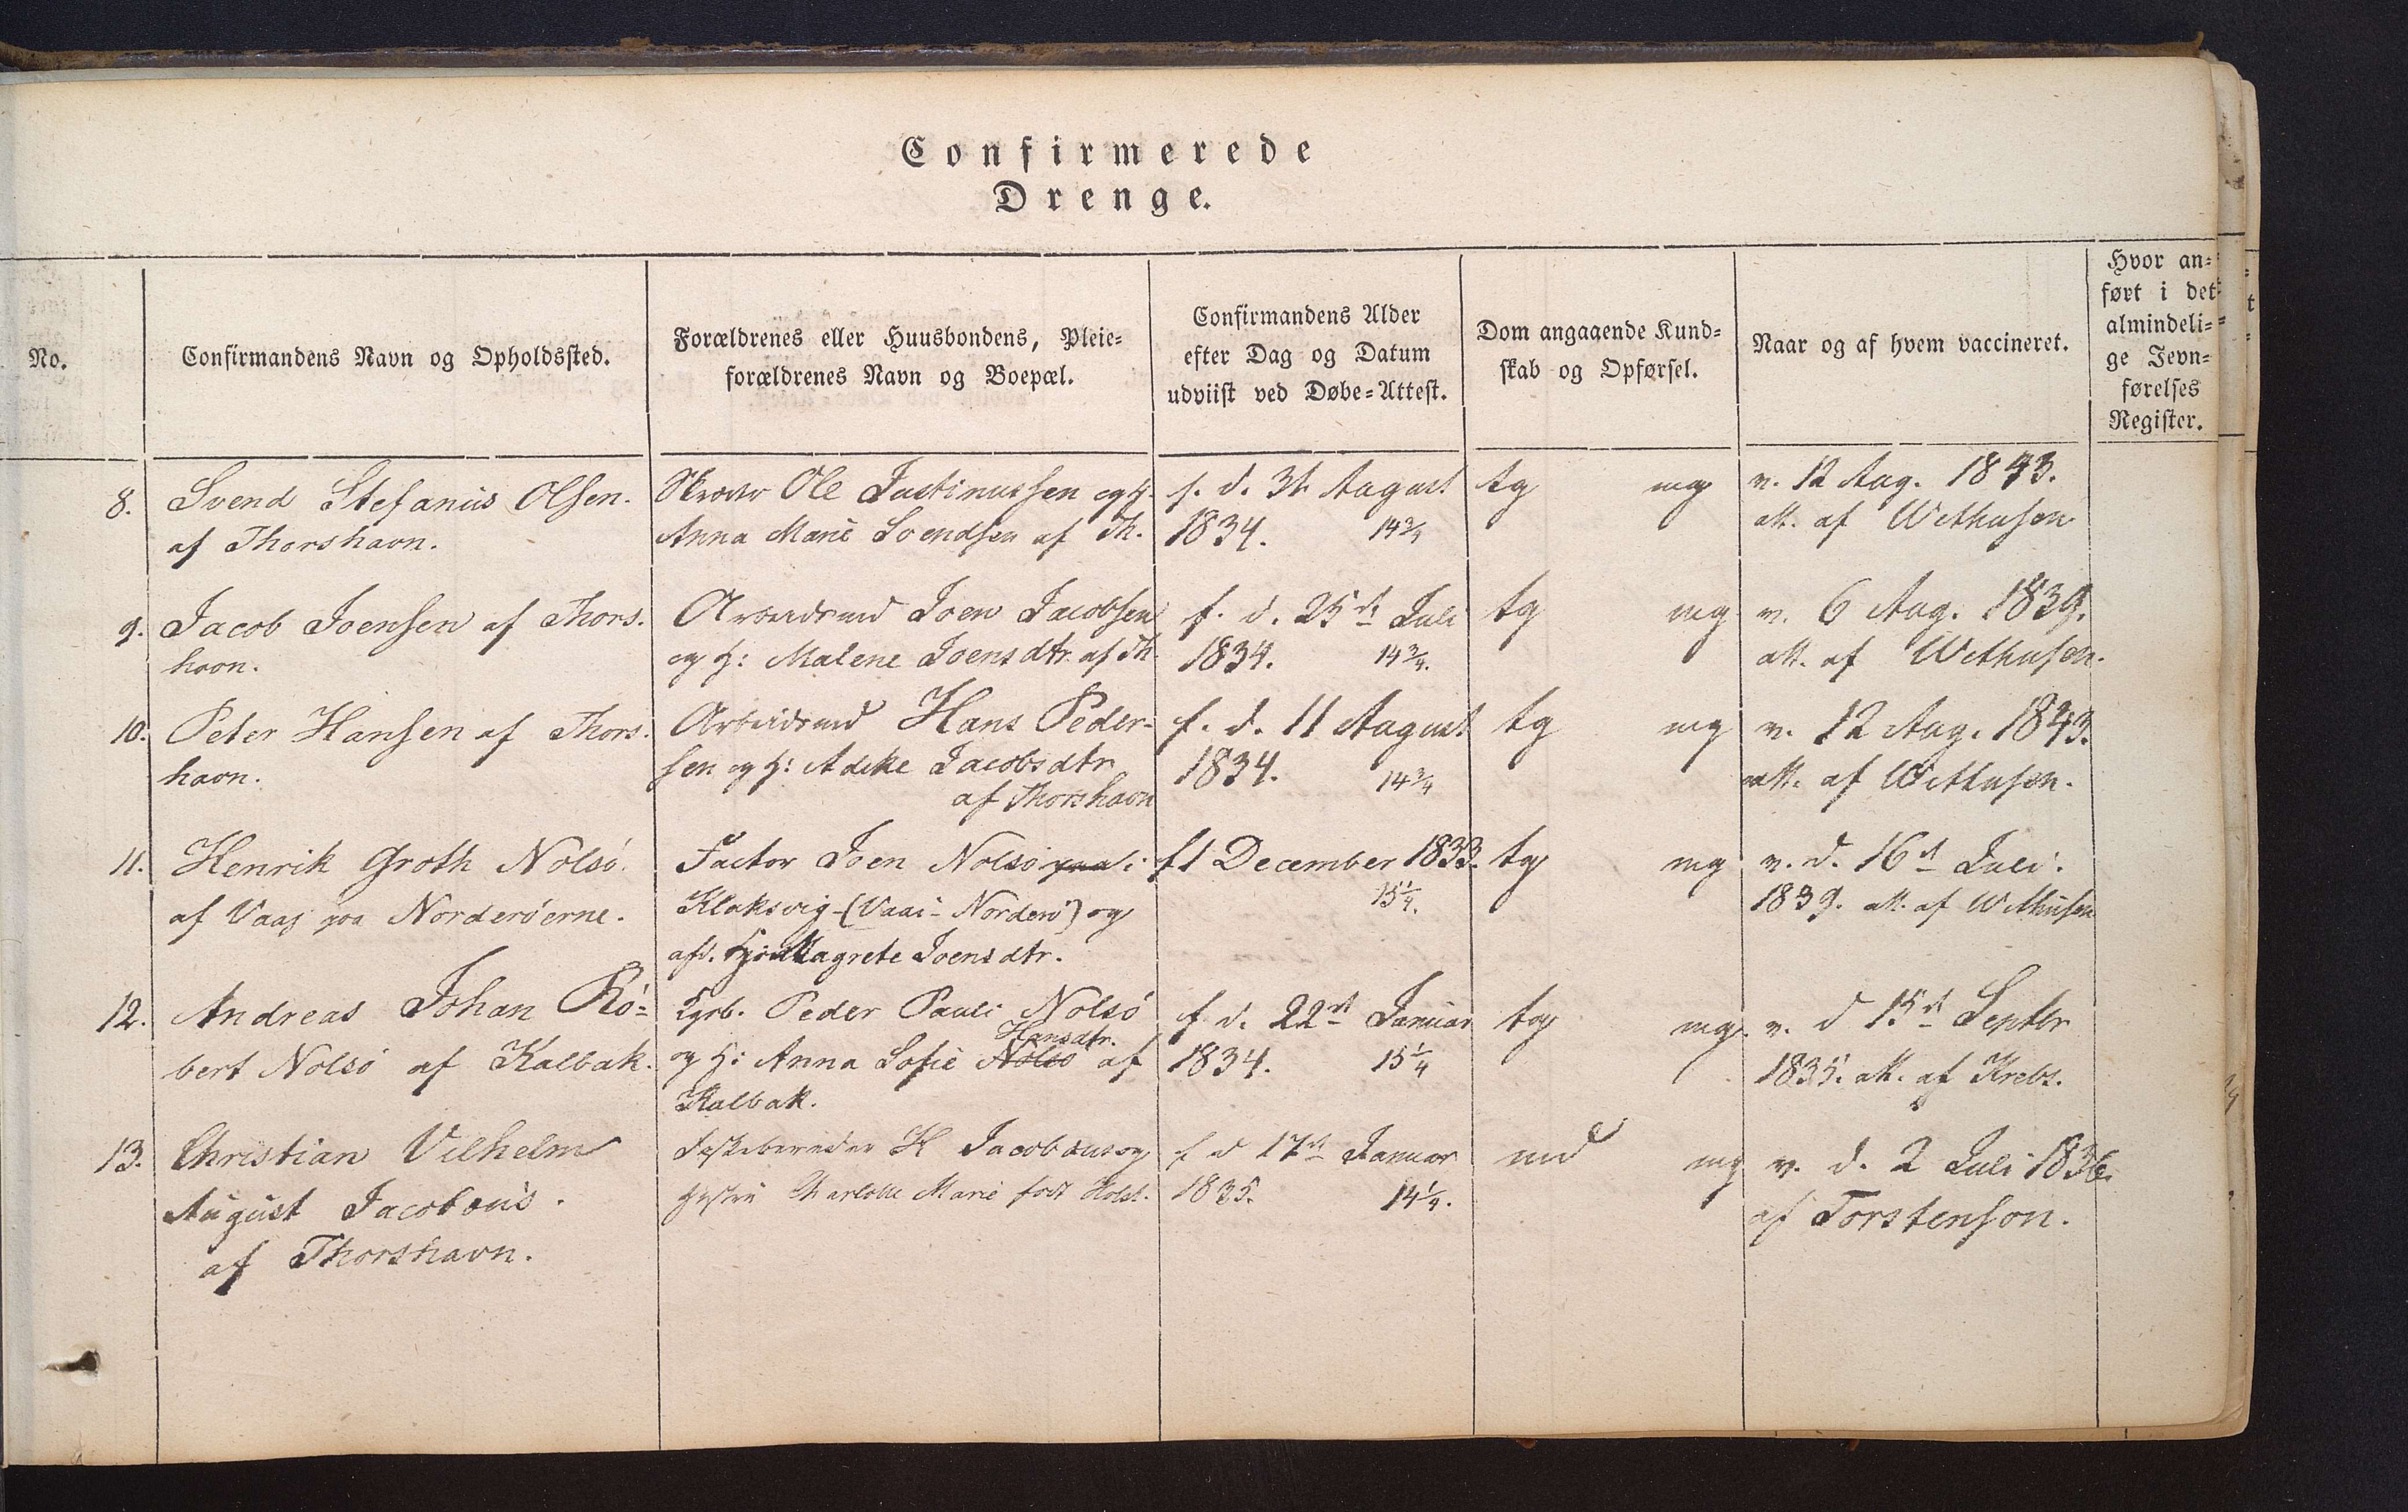 Confirmerede
Drenge.
No.
Confirmandens Navn og Opholdssted.
Forældrenes eller Huusbondens, Pleie-
forældrenes Navn og Boepæl.
Confirmandens Alder
efter Dag og Datum
udviist ved Døbe-Attest.
Dom angaaende Kund-
skab og Opførsel.
Naar og af hvem vaccineret.
Hvor an-
ført i det
almindeli-
ge Jevn-
førelses
Register.
8. Svend Stefanus Olsen.
af Thorshavn.
Ole Justinussen og H.
Anna Marie Svendsen af Th.
f. d. 31 August
1834. 14 3/4
tg mg
v. 12 Aug. 1843.
att. af Wethusen
9. Jacob Joensen af Thors.
havn.
Arbeidsmd Joen Jacobsen
og H: Malene Joensdtr. af Th.
f. d. 25de Juli
1834. 14 3/4.
tg mg
v. 6 Aug. 1839.
att. af Wethusen.
10. Peter Hansen af Thors.
havn.
Arbeidsmd Hans Peder-
sen og H: Adelke Jacobsdtr
af Thorshavn
f. d. 11 August
1834. 14 3/4
tg mg
v. 12 Aug. 1843.
att. af Wethusen.
11. Henrik Groth Nolsö.
af Vaag paa Norderöerne.
Factor Joen Nolsö i
Klaksvig (Vaai - Norderö) og
afd. H: Magrete Joensdtr.
f 1 December 1833.
15 1/4.
tg mg
v. d. 16d Juli.
1839. att. af Wethusen
12. Andreas Johan Ro-
bert Nolsö af Kalbak.
Kgsb. Peder Pauli Nolsö
Hansdtr.
og H: Anna Sofie Nolsö af
Kalbak.
f d. 22d Januar
1834. 15 1/4
tg mg.
v. d 15d Septbr
1835. att. af Krebs.
13. Christian Vilhelm
August Jacobæus.
af Thorshavn.
H Jacobæus og
Hustru Charlotte Marie født Holst.
f d 17d Januar
1835. 14 1/4.
md mg
v. d. 2 Juli 1836.
af Torstenson.